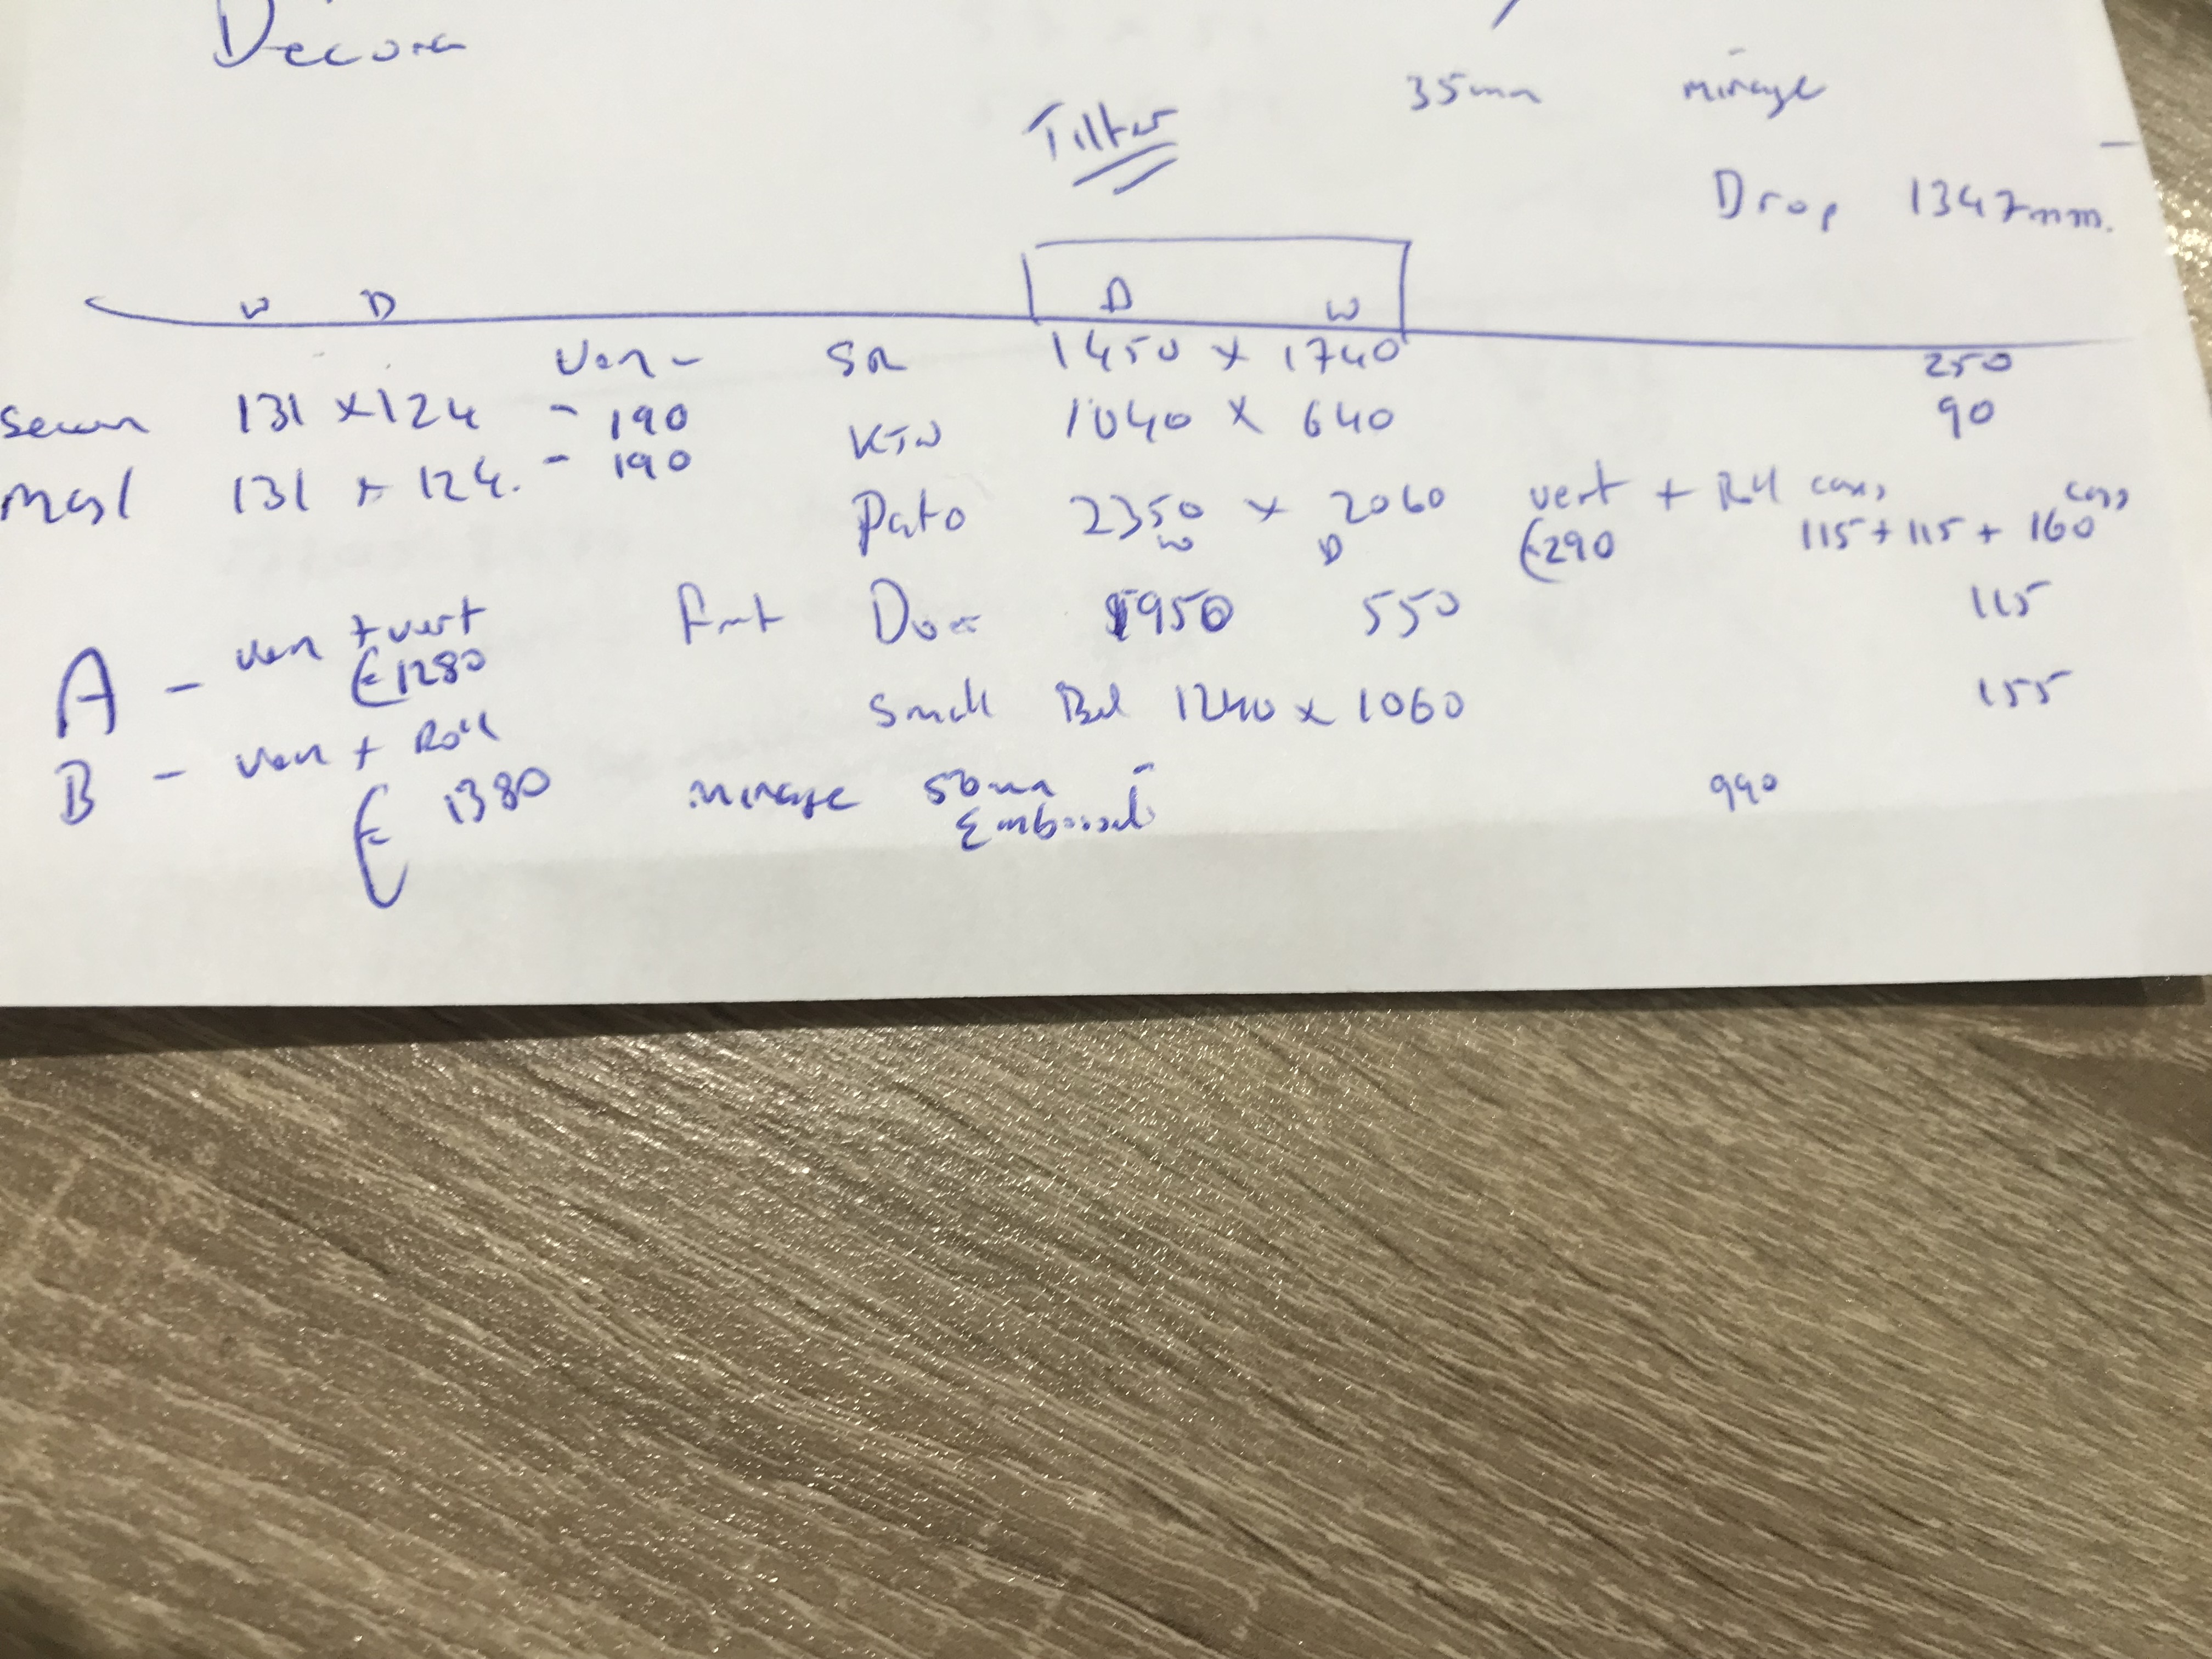 Decora
35mm mirage
Tilter
Drop 1347mm.
W D D W
Ven - SR 1450 x 1740 250
131 x 124 - 190 KTN 1040 x 640 90
131 x 124. - 190
Patio 2350 x 2060 vert + Roll cass cass
W D €290 115 + 115 + 160
Frnt Door 1950 550 115
A - ven + vert
€1280
Small Bed 1240 x 1060 155
B - ven + Roll
€ 1380 mirage 50mm 990
Embossed